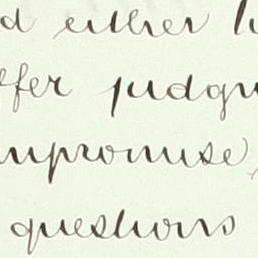 d either h
ffer judgm
mpromise,
questions